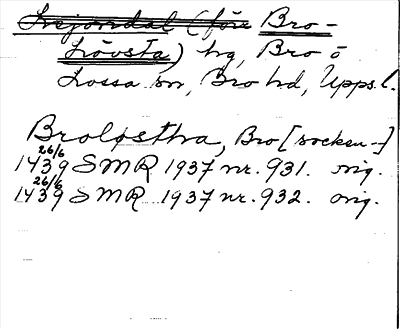 Lejondal (före Bro-
Lövsta) hg, Bro o
Lossa sn, Bro hd, Upps. l.
Brolostha, Bro [socken-]
26/6
1439 SMR 1937 nr. 931. orig.
26/6
1439 SMR 1937 nr. 932. orig.